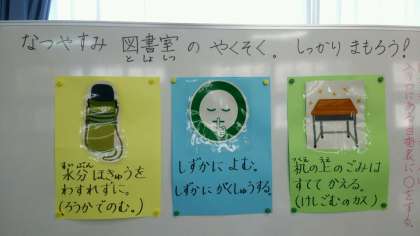 なつやすみ 図書室の やくそく。 しっかり まもろう!
としょしつ
すいぶん
水分ほきゅうを
わすれずに。
(ろうかでのむ。)
しずかに よむ。
しずかに がくしゅうする。
つくえ うえ
机の上のごみは
すてて かえる。
(けしごむのカス)